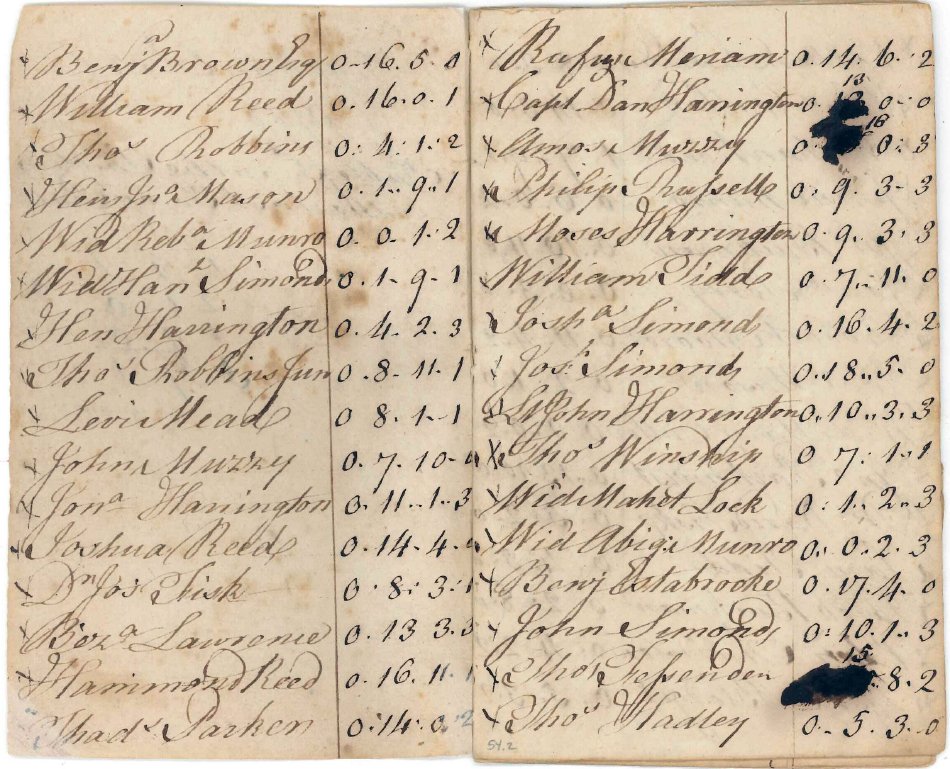 Benjn Brown Esq 0-16.5.0
William Reed 0.16.0.1
Thos Robbins 0:4:1.2
Mason 0.1.9.1
Wid Reba Munro 0.0.1.2
Wid Han Simonds 0.1-9-1
Hen Harrington 0.4.2.3
Thos Robbins Jun 0.8.11.1
Levi Mead 0 8.1-1
John Muzzy 0.7.10
Jona Harrington 0.11..1.3
Joshua Reed 0.14.4
Dn Jos Fisk 0.8:3.1
Beza Lawrence 0.13 3.3
Hammond Reed 0.16.11.1
Thads Parker 0.14.0.2
Rufus Meriam 0.14.6.2
Capt Dan Harrington 0. 13 0-0
Amos Muzzy 0 16 0:3
Philip Russell 0:9.3-3
Moses Harrington 0.9.3.3
William Tidd 0.7..11.0
Josha Simond 0.16.4.2
Josh Simonds 0.18..5.0
Lt John Harrington 0..10..3.3
Thos Winship 0 7:1.1
Wid Mahet Lock 0:1..2..3
Wid Abigl Munro 0..0.2.3
Benj Estabrooke 0.17.4.0
John Simonds 0:10.1..3
Thos Fessenden 15 .8.2
Thos Hadley 0-5.3.0
54.2